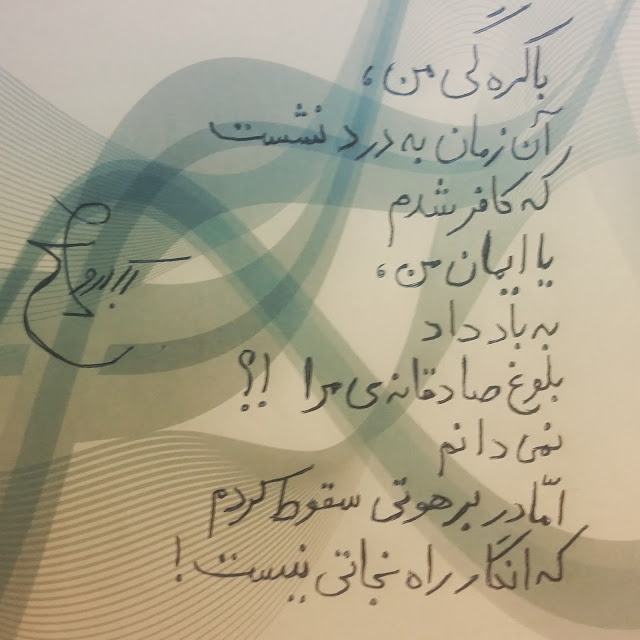 باکره گی من،
آن زمان به درد نشست
که کافر شدم
یا ایمان من،
به باد داد
بلوغ صادقانه ی مرا !؟
نمی دانم
امّا در برهوتی سقوط کردم
که انگار راه نجاتی نیست !